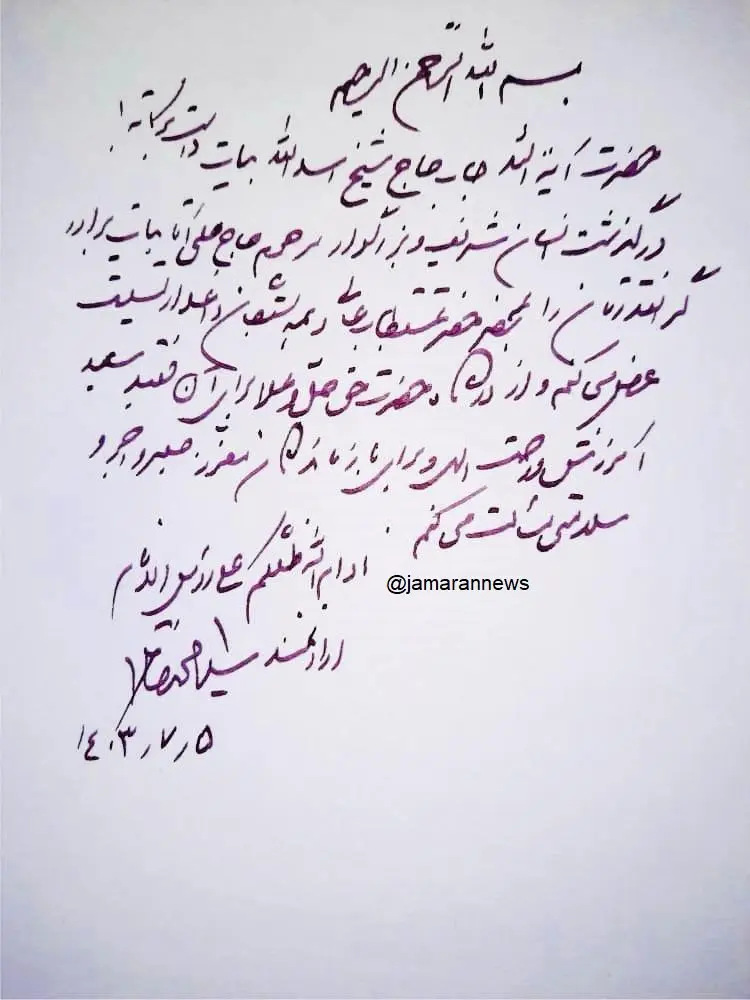 بسم الله الرحمن الرحیم
حضرت آیة الله جناب حاج شیخ اسدالله بیات دامت برکاته
درگذشت انسان شریف و بزرگوار مرحوم حاج علی آقا بیات برادر
گرانقدرتان را به محضر حضرت مستطاب عالی و همه بستگان داغدار تسلیت
عرض می کنم و از درگاه حضرت حق جل و علا برای آن فقید سعید
آمرزش و رحمت الهی و برای بازماندگان معزز صبر و اجر و
سلامتی مسألت می کنم.
ادام الله ظلکم علی رؤس الانام
@jamarannews
ارادتمند سید محمد خاتمی
۱۴۰۳٫۷٫۵